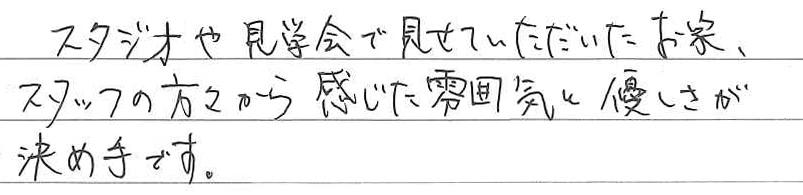 スタジオや見学会で見せていただいたお家、
スタッフの方々から感じた雰囲気と優しさが
決め手です。